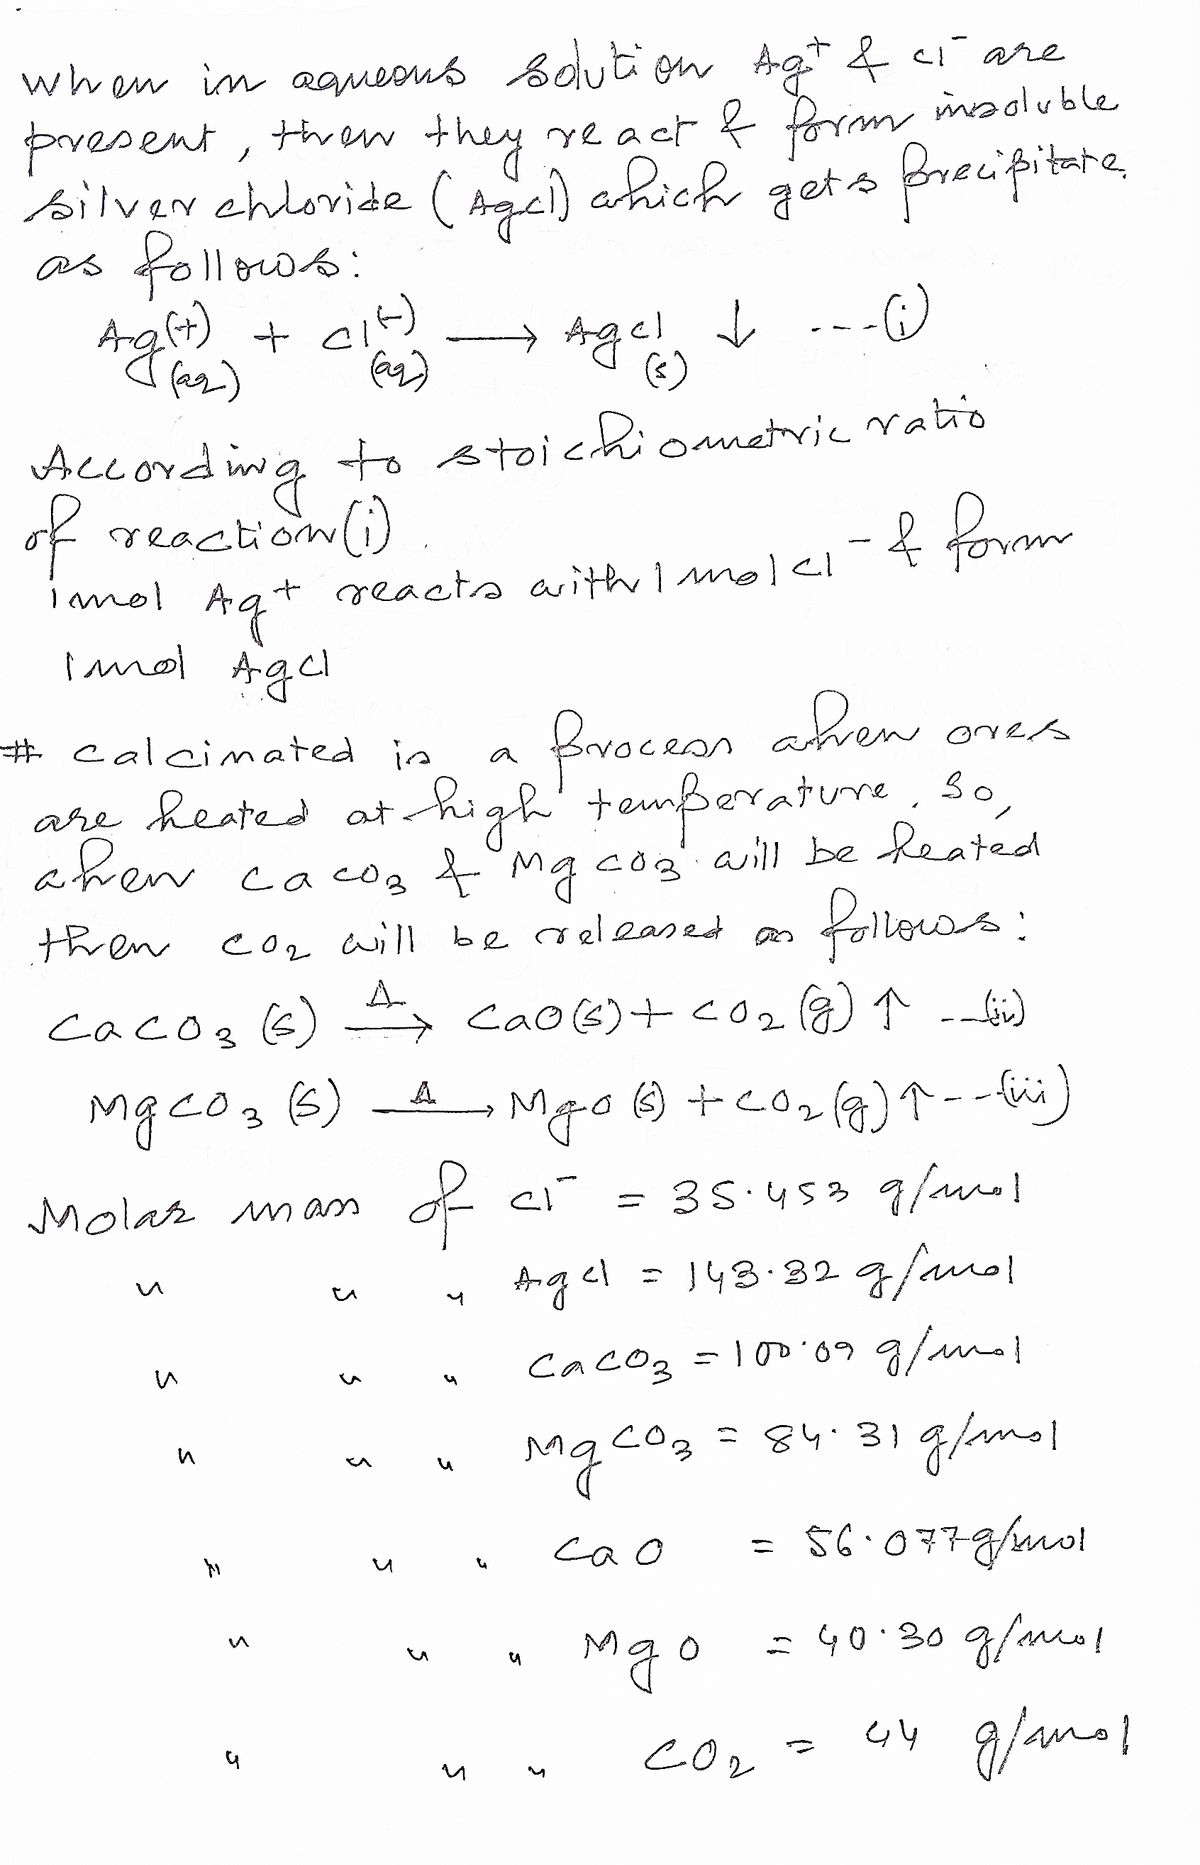 when in aqueous solution Ag⁺ & Cl⁻ are
present, then they react & form insoluble
silver chloride (AgCl) which gets precipitate
as follows:
Ag(+)(aq) + Cl(-)(aq) ⟶ AgCl(s) ↓ ---(i)
According to stoichiometric ratio
of reaction(i).
1mol Ag⁺ reacts with 1 mol Cl⁻ & form
1mol AgCl
# Calcinated is a process when ores
are heated at high temperature. So,
when CaCO₃ & MgCO₃ will be heated
then CO₂ will be released as follows:
CaCO₃(s) —Δ→ CaO(s) + CO₂(g) ↑ ---(ii)
MgCO₃(s) —Δ→ MgO(s) + CO₂(g) ↑ ---(iii)
Molar mass of Cl⁻ = 35.453 g/mol
" " " AgCl = 143.32 g/mol
" " " CaCO₃ = 100.09 g/mol
" " " MgCO₃ = 84.31 g/mol
" " " CaO = 56.077 g/mol
" " " MgO = 40.30 g/mol
" " " CO₂ = 44 g/mol